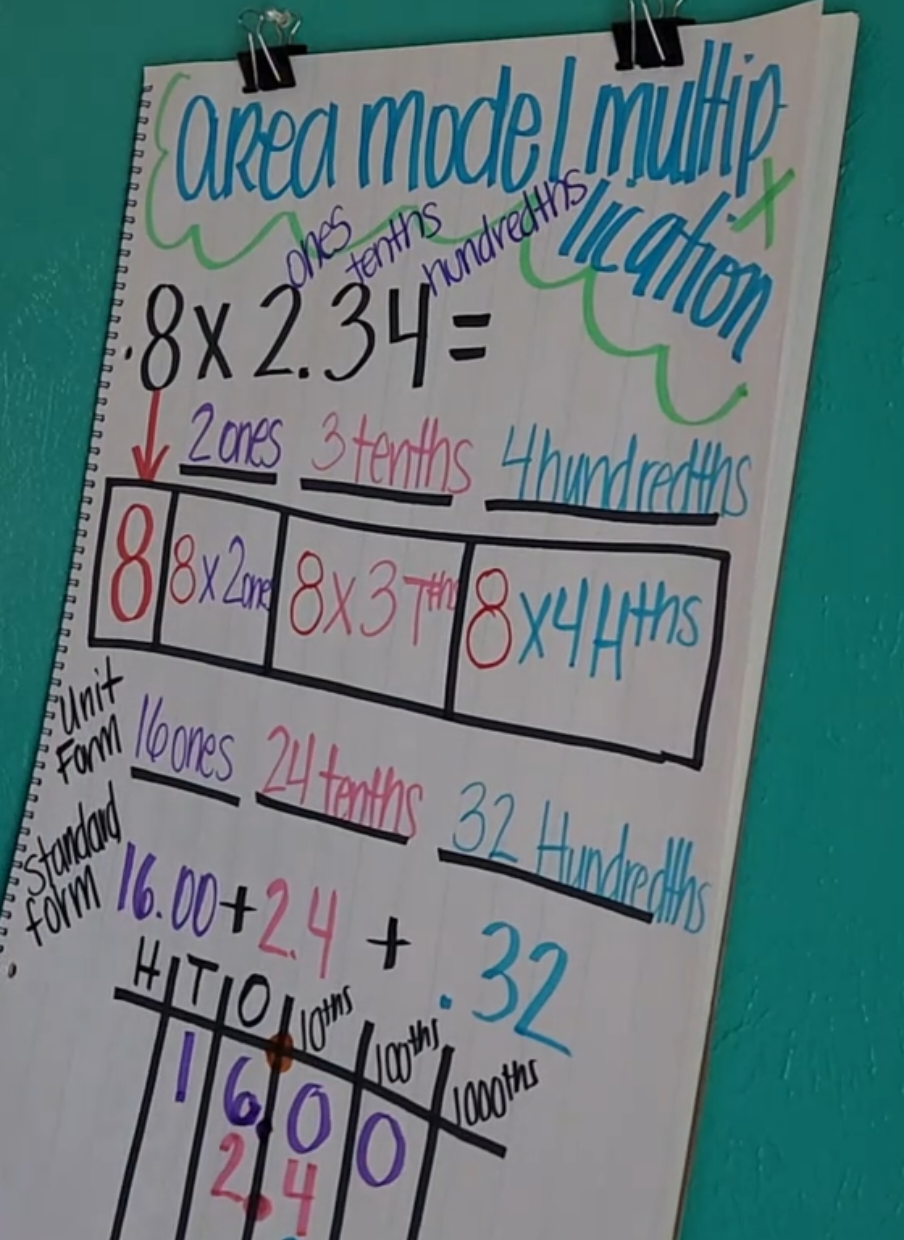 area model multip
lication x
ones tenths hundredths
.8x2.34=
2 ones 3 tenths 4 hundredths
8 8x2ones 8x3Tths 8x4Hths
Unit Form 16 ones 24 tenths 32 Hundredths
Standard form 16.00+2.4 + .32
H T O 10ths 100ths 1000ths
1 6.00
2.4